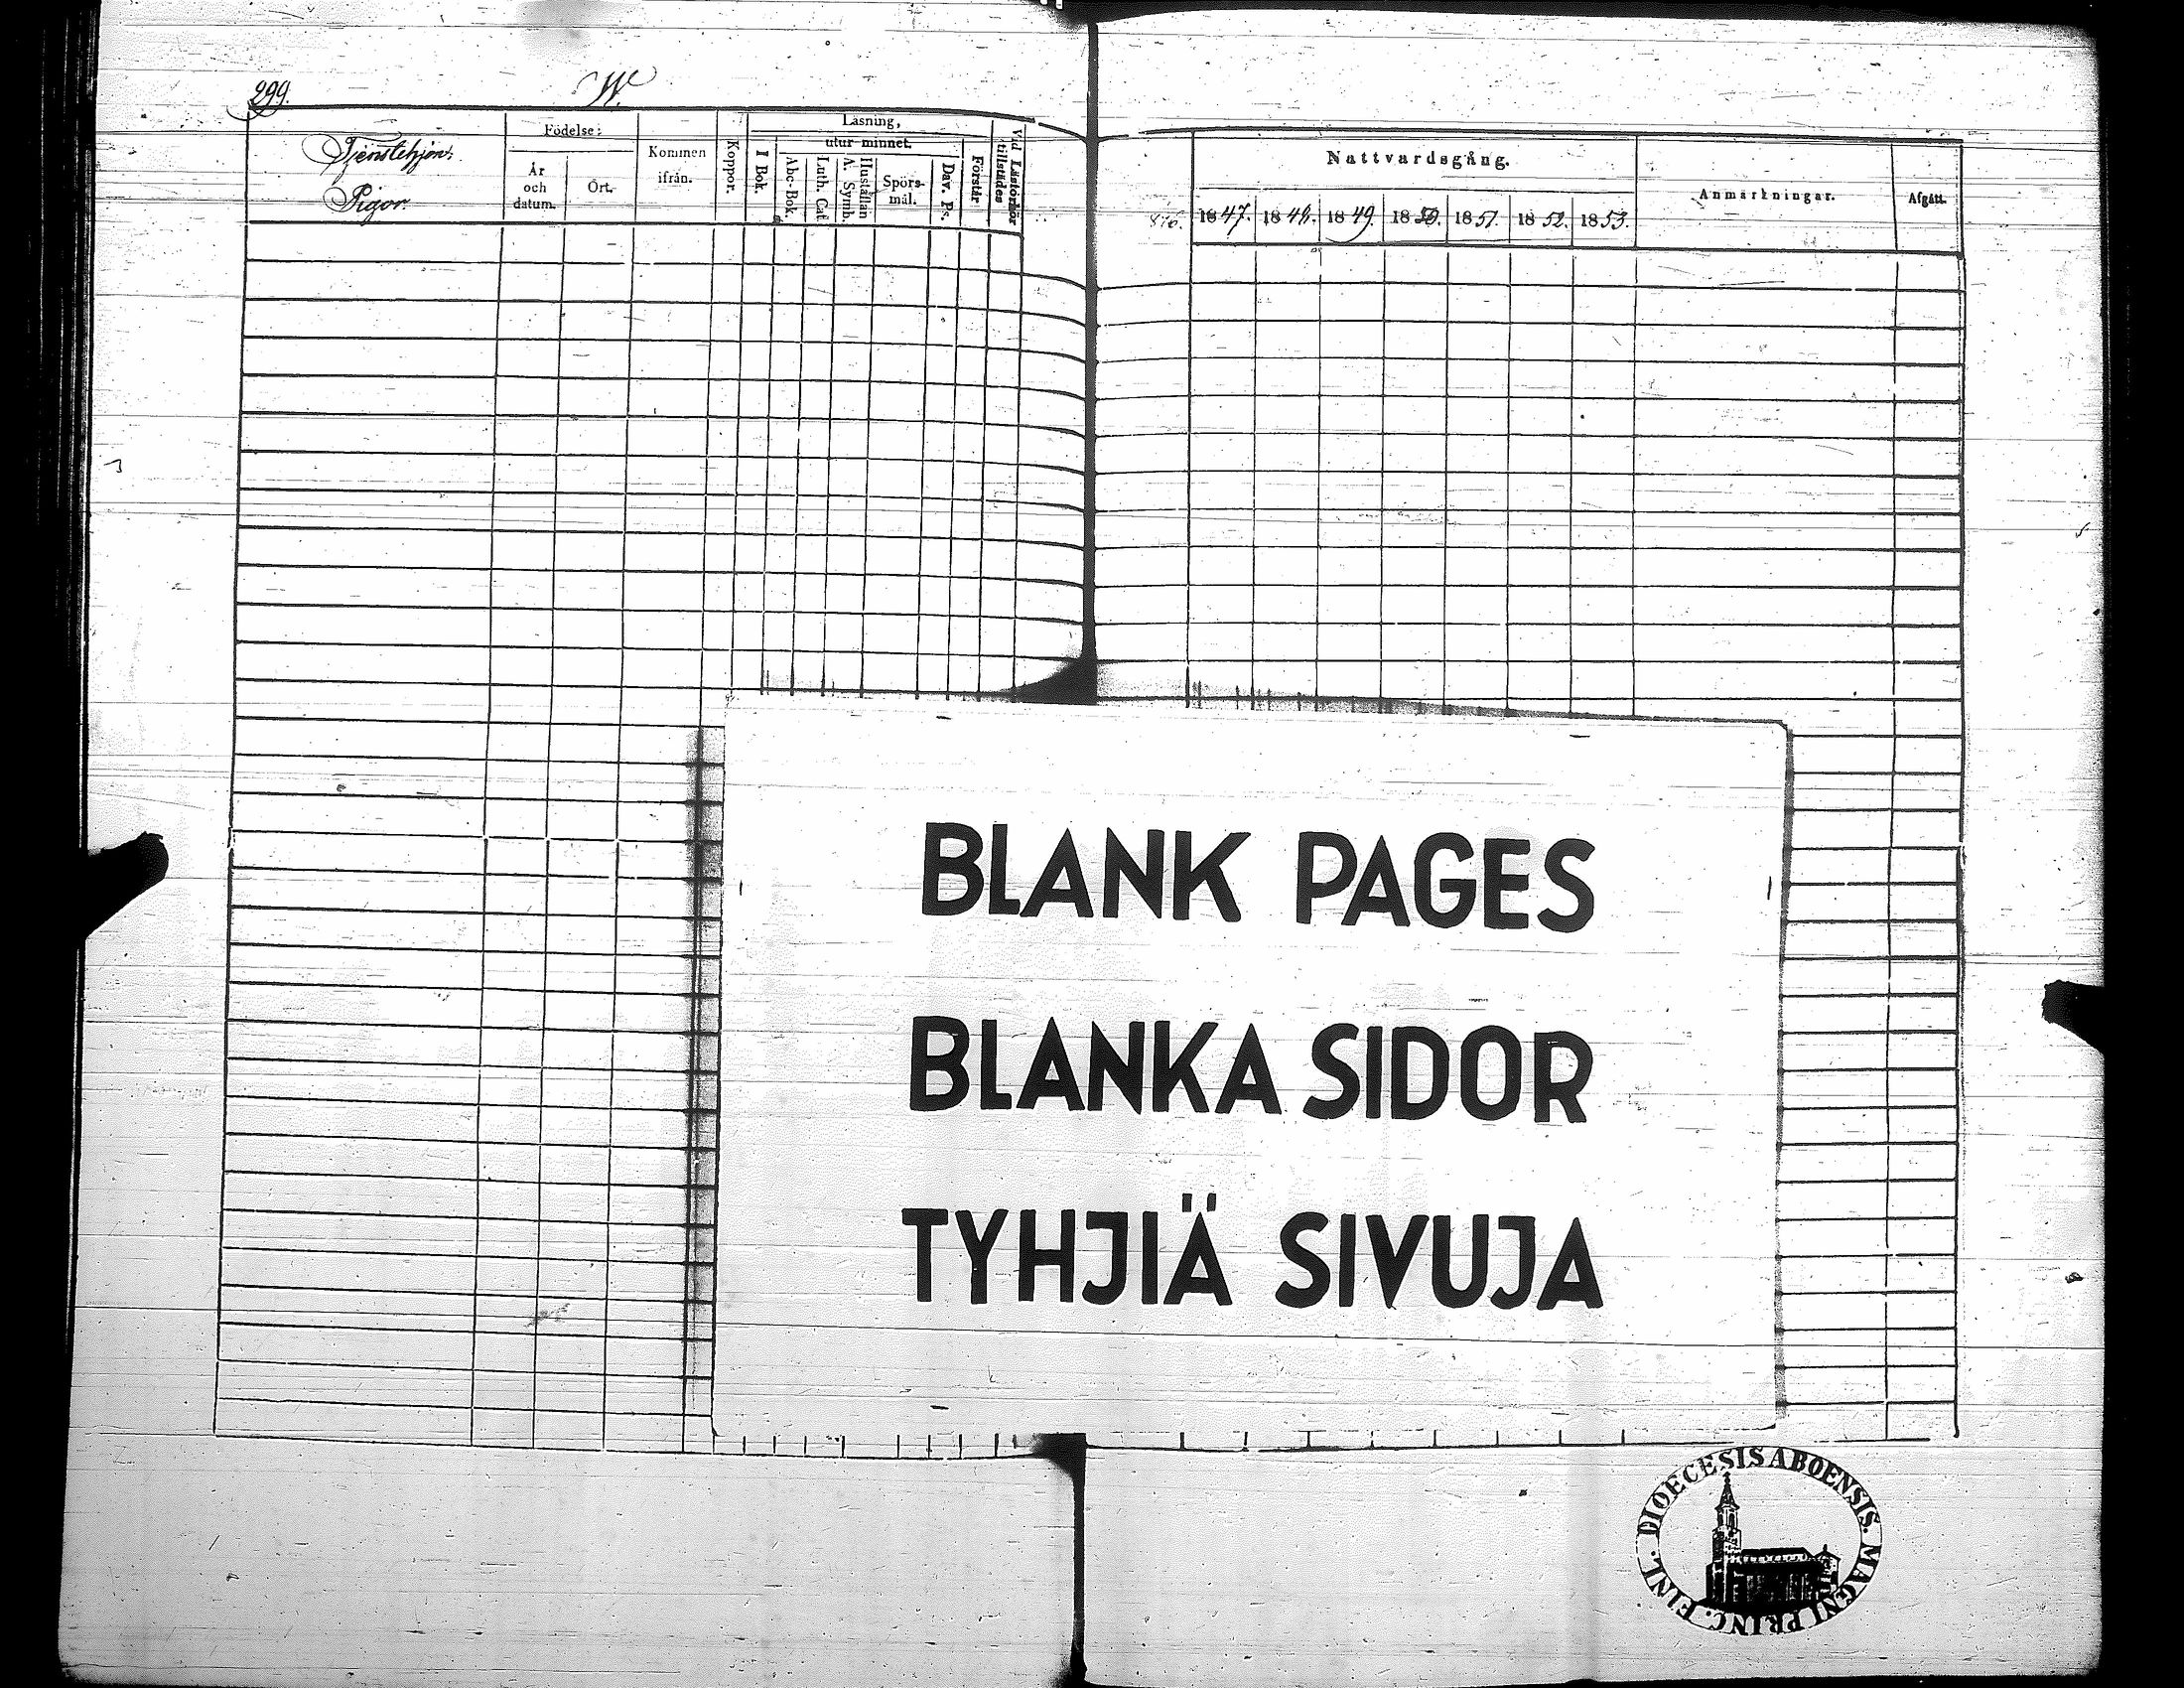 299.
W.
Tjenstehjon.
Pigor.
Födelse:
År
och
datum.
Ort.
Kommen
ifrån.
Koppor.
Läsning,
utur minnet.
I Bok.
Abc-Bok.
Luth. Cat.
A. Symb.
Hustaflan
Spörs-
mål.
Dav. Ps.
Förstår
Vid Läsförhör
tillstädes
Nattvardsgång.
1847.
1848.
1849.
1850.
1851.
1852.
1853.
Anmärkningar.
Afgått.
BLANK PAGES
BLANKA SIDOR
TYHJIÄ SIVUJA
DIOECESIS ABOENSIS. MAGNI PRINC. FINL.